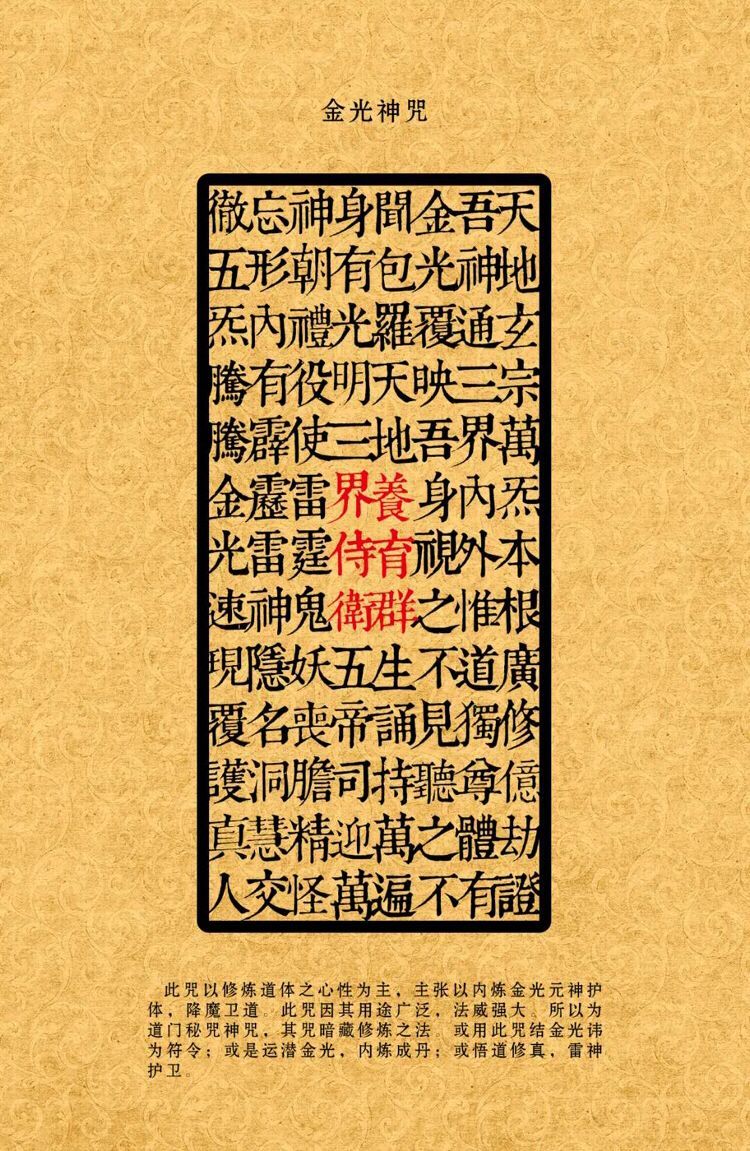 金光神咒
天地玄宗萬炁本根廣修億劫證
吾神通三界內外惟道獨尊體有
金光覆映吾身視之不見聽之不
聞包羅天地養育群生誦持萬遍
身有光明三界侍衛五帝司迎萬
神朝禮役使雷霆鬼妖喪膽精怪
忘形內有霹靂雷神隱名洞慧交
徹五炁騰騰金光速現覆護真人
此咒以修炼道体之心性为主，主张以内炼金光元神护
体，降魔卫道。此咒因其用途广泛，法威强大。所以为
道门秘咒神咒，其咒暗藏修炼之法。或用此咒结金光讳
为符令；或是运潜金光，内炼成丹；或悟道修真，雷神
护卫。